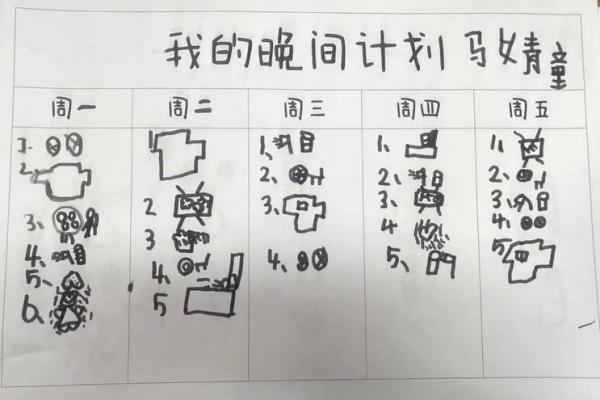 我的晚间计划 马婧童
周一 周二 周三 周四 周五
1. 1 1、 1、 1.
2. 2 2、 2、 2、
3、 3 3、 3、 3、
4、 4、 4、 4 4、
5、 5 5、 5
6、